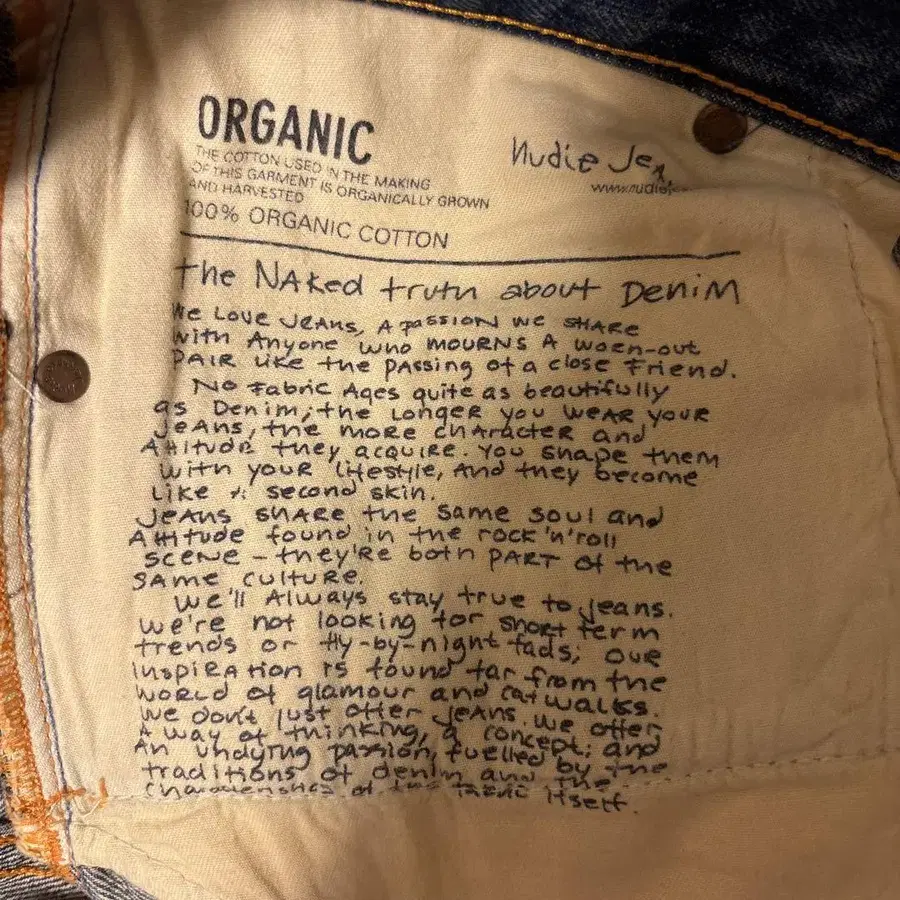 ORGANIC
THE COTTON USED IN THE MAKING
OF THIS GARMENT IS ORGANICALLY GROWN
AND HARVESTED
100% ORGANIC COTTON
Nudie Je
www.nudieje
the NAked truth about DeniM
We Love JeAns, A passion we sHARe
with Anyone who mouRNS A woRn-out
PAIR Like the Passing of a close Friend.
No Fabric Ages quite as beautifully
as Denim; the Longer you weAR youR
JeAns, the more chARacter and
Attitude they acquire. You shape them
with your Lifestyle, And they become
Like A second skin.
JeAns sHARe the same soul and
Attitude found in the rock'n'roll
scene - they're both PARt of the
SAMe culture.
We'll Always stay true to jeans.
We're not looking for short term
trends or fly-by-night fads; ouR
inspiRation is found far from the
world of glamour and catwalks.
We don't just offer jeans. We offer
A way of thinking, a concept; and
An undying passion, fuelled by the
traditions of denim and the
characteristics of the fabric itself.